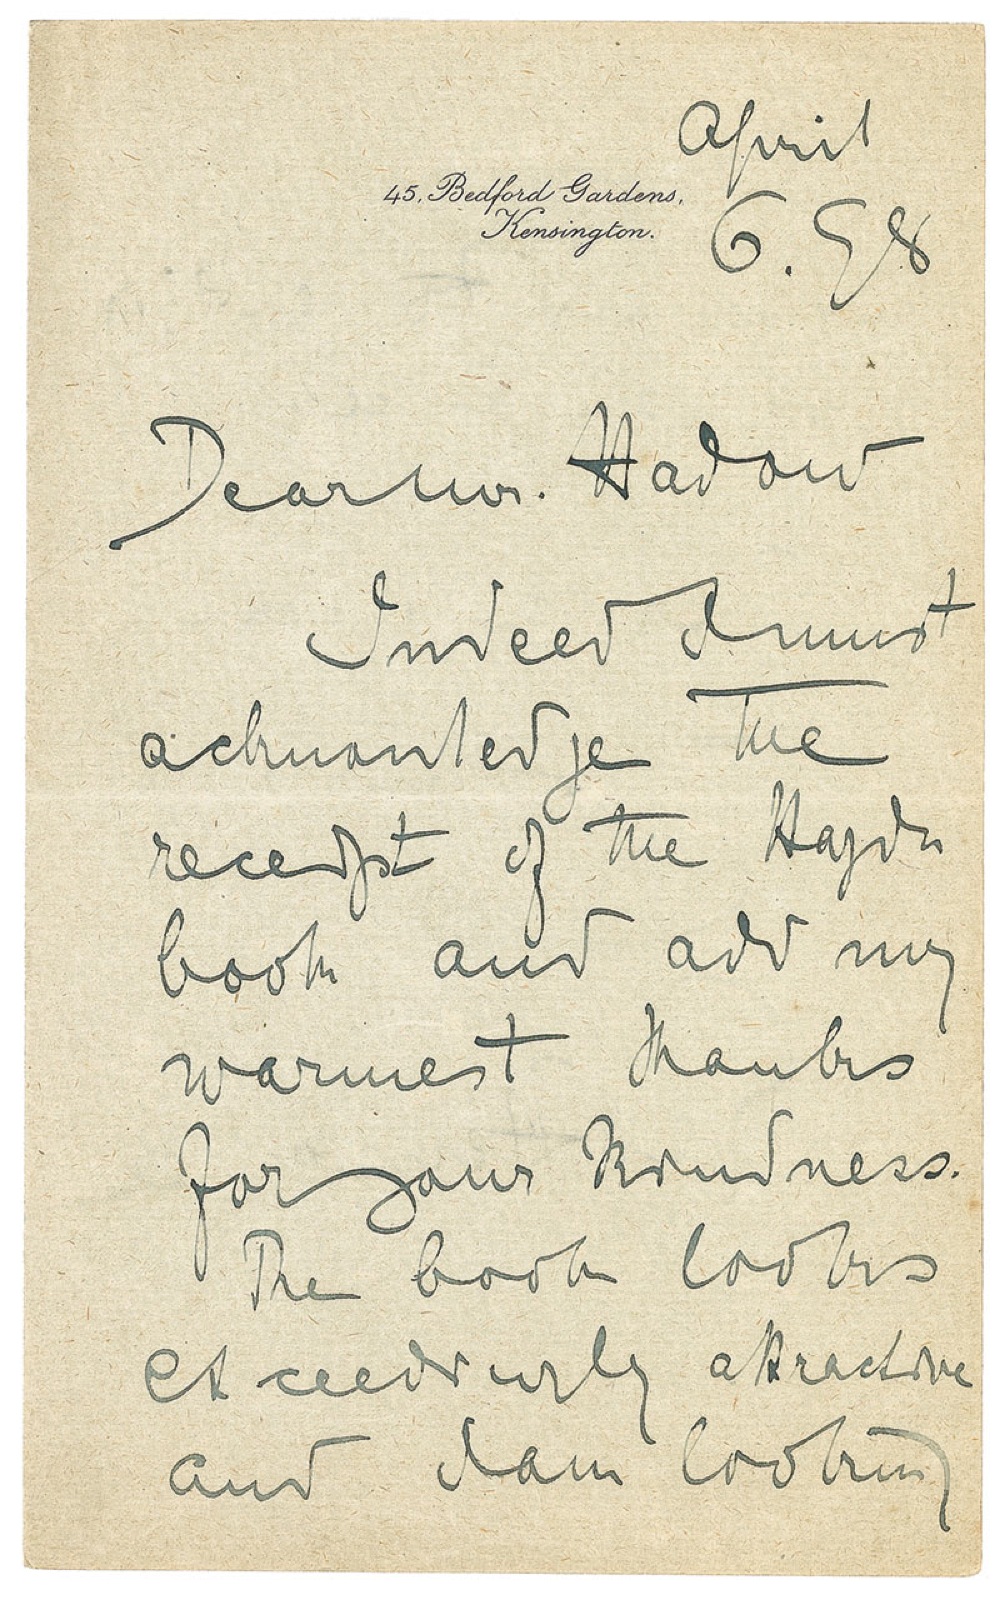 April
45, Bedford Gardens,
Kensington.
6. 98
Dear Mr. Hadow
Indeed I must
acknowledge the
receipt of the Haydn
book and add my
warmest thanks
for your kindness.
The book looks
exceedingly attractive
and I am looking